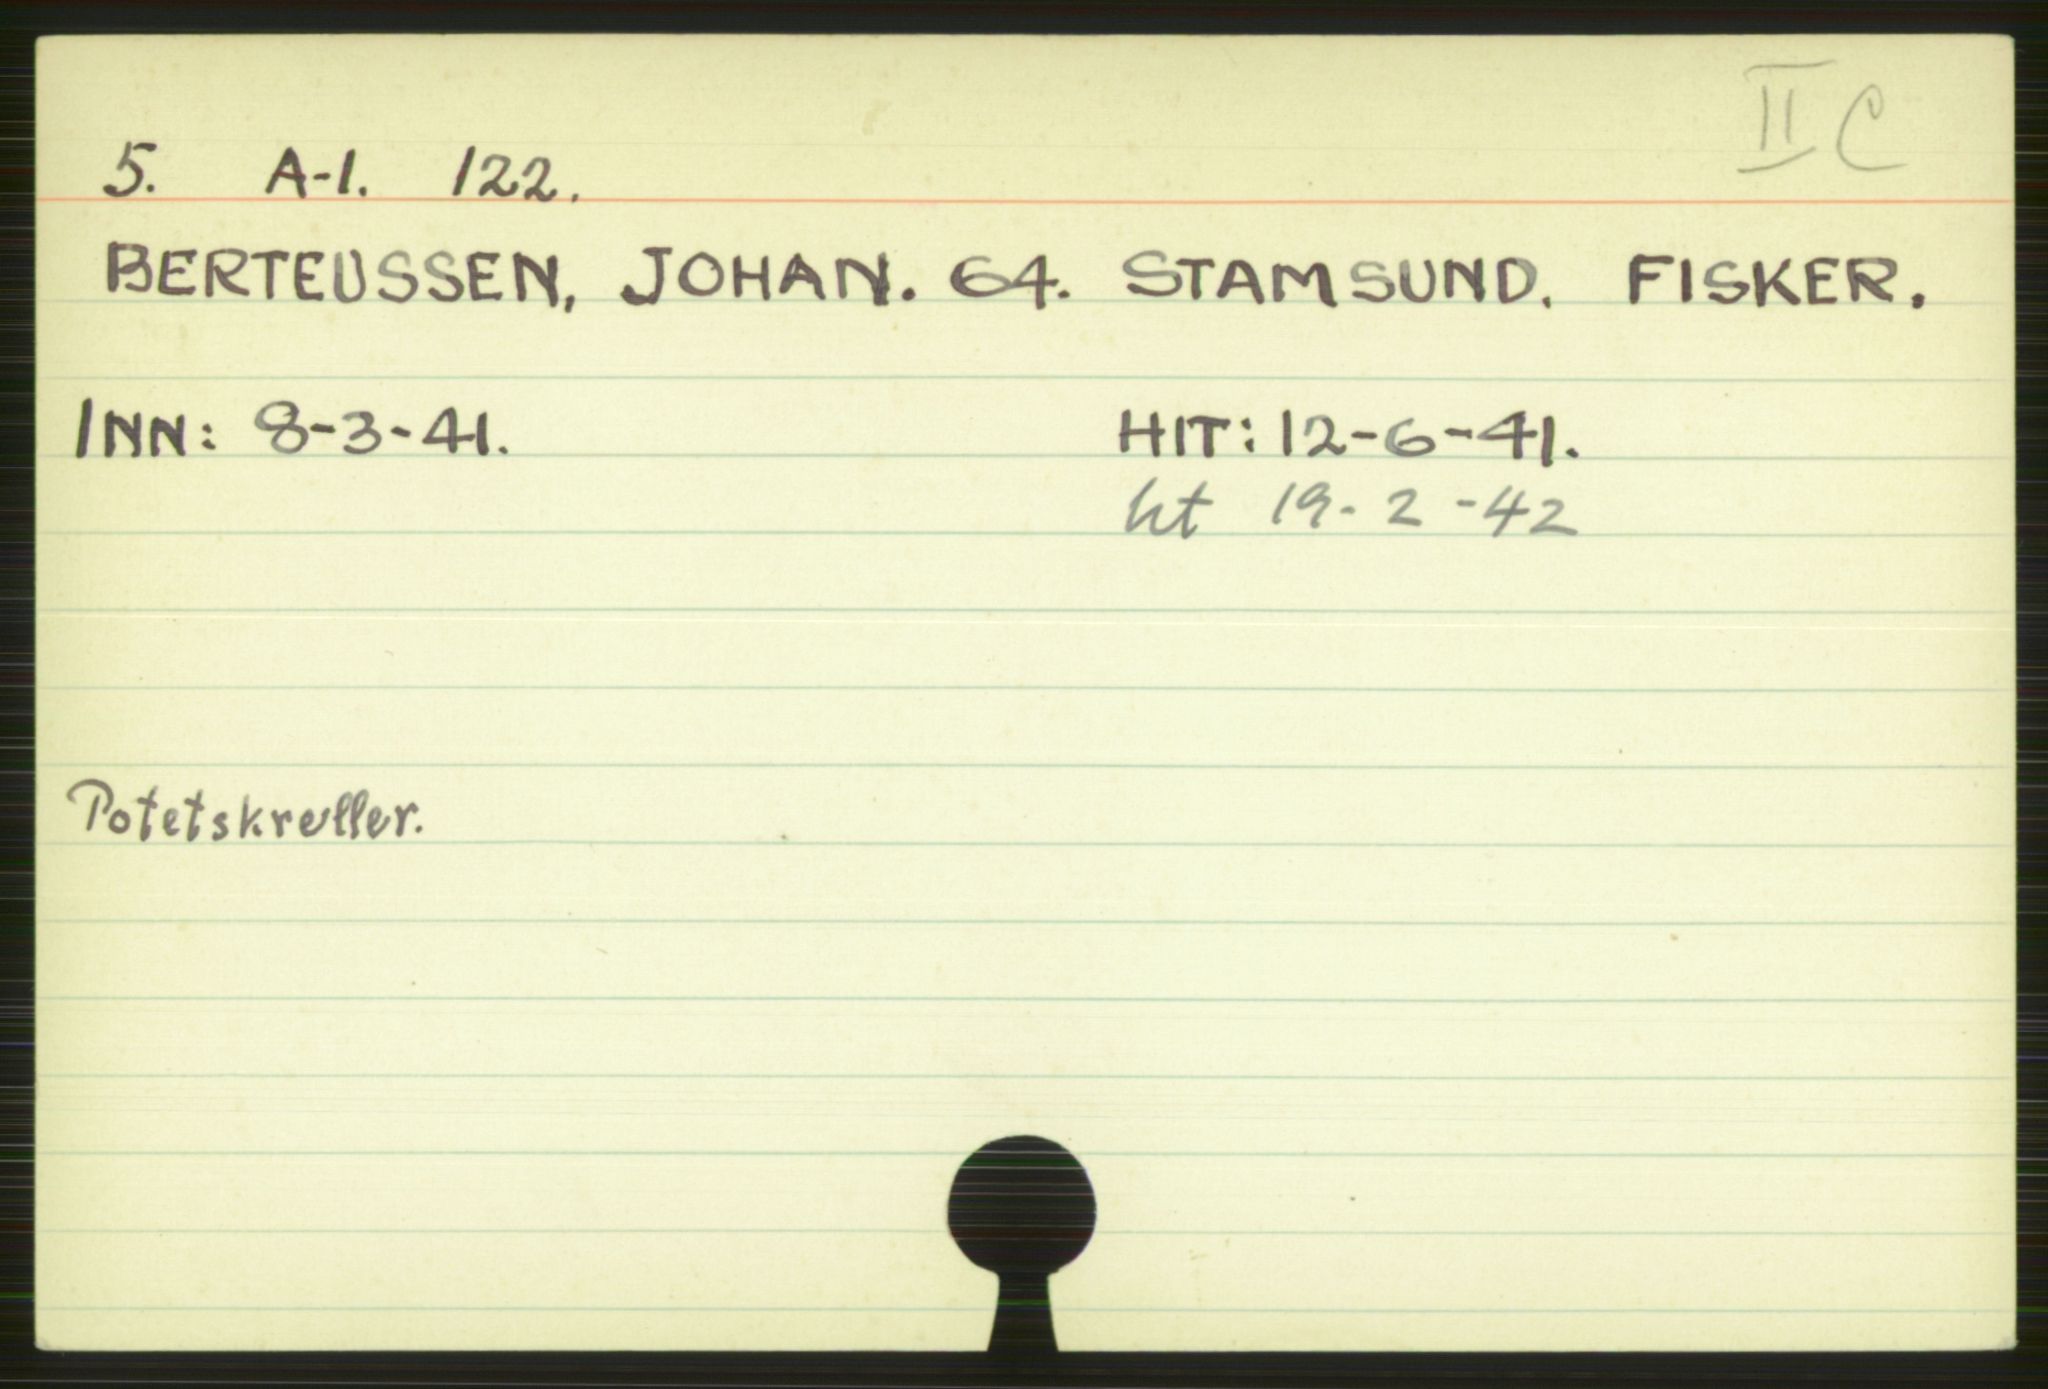 II C
5. A-1. 122.
BERTEUSSEN, JOHAN. 64. STAMSUND. FISKER.
INN: 8-3-41. HIT: 12-6-41.
ut 19-2-42
Potetskreller.